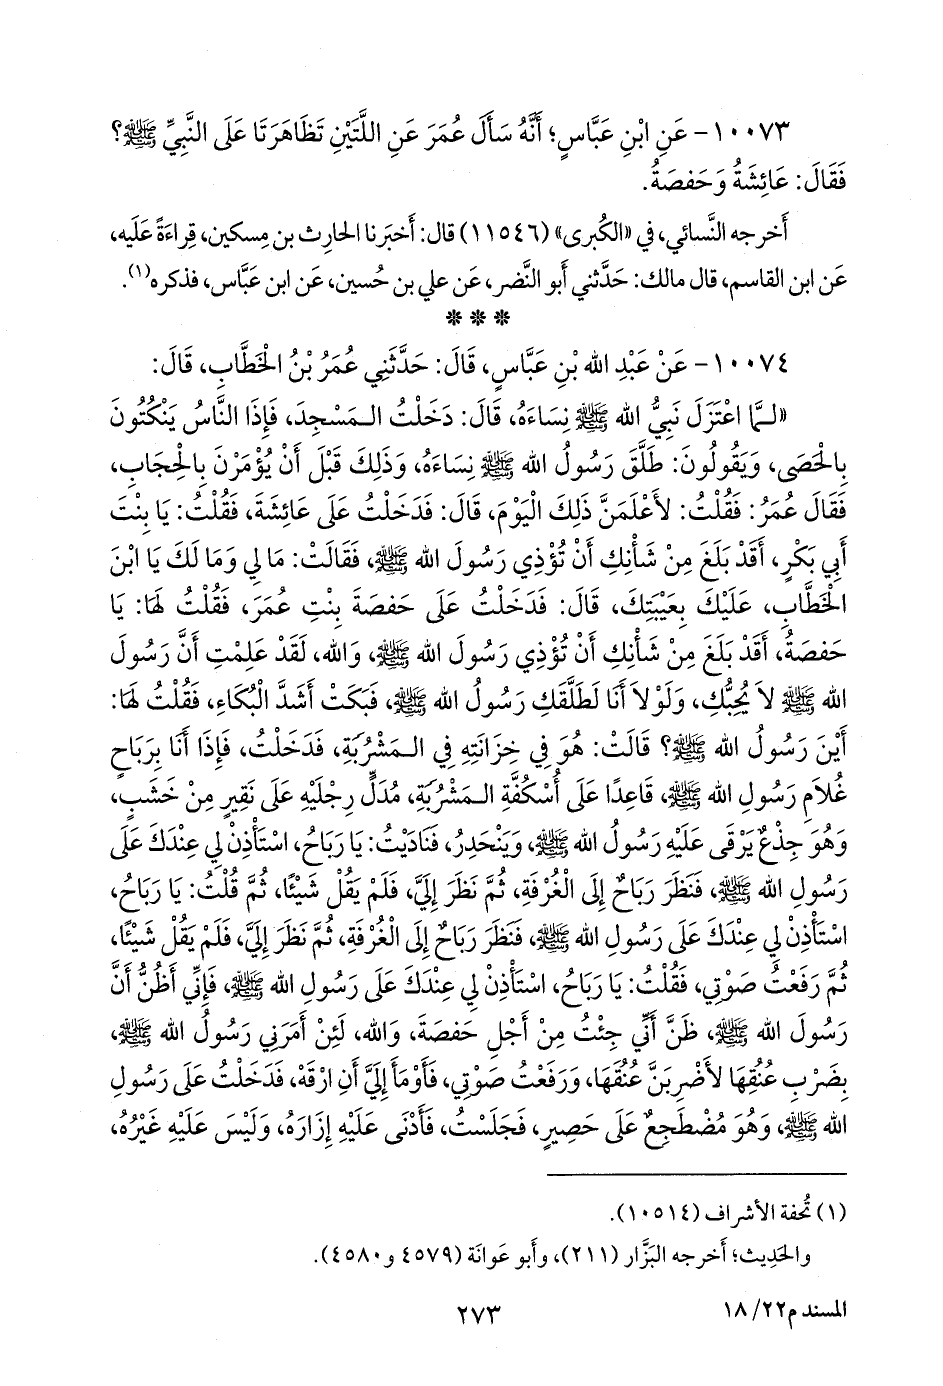 ١٠٠٧٣ - عَنِ ابْنِ عَبَّاسٍ؛ أَنَّهُ سَأَلَ عُمَرَ عَنِ اللَّتَيْنِ تَظَاهَرَتَا عَلَى النَّبِيِّ ﷺ؟
فَقَالَ: عَائِشَةُ وَحَفصَةُ.
أَخرجه النَّسائي، في «الكُبرى» (١١٥٤٦) قال: أَخبَرنا الحارِث بن مِسكين، قِراءَةً عَليه،
عَن ابن القاسم، قال مالك: حَدَّثني أَبو النَّضر، عَن علي بن حُسين، عَن ابن عَبَّاس، فذكره(١).
* * *
١٠٠٧٤ - عَنْ عَبْدِ الله بْنِ عَبَّاسٍ، قَالَ: حَدَّثَنِي عُمَرُ بْنُ الْخَطَّابِ، قَالَ:
«لـمَّا اعْتَزَلَ نَبِيُّ الله ﷺ نِسَاءَهُ، قَالَ: دَخَلْتُ الـمَسْجِدَ، فَإِذَا النَّاسُ يَنْكُتُونَ
بِالْحَصَى، وَيَقُولُونَ: طَلَّقَ رَسُولُ الله ﷺ نِسَاءَهُ، وَذَلِكَ قَبْلَ أَنْ يُؤْمَرْنَ بِالْحِجَابِ،
فَقَالَ عُمَرُ: فَقُلْتُ: لأَعْلَمَنَّ ذَلِكَ الْيَوْمَ، قَالَ: فَدَخَلْتُ عَلَى عَائِشَةَ، فَقُلْتُ: يَا بِنْتَ
أَبِي بَكْرٍ، أَقَدْ بَلَغَ مِنْ شَأْنِكِ أَنْ تُؤْذِي رَسُولَ الله ﷺ، فَقَالَتْ: مَا لِي وَمَا لَكَ يَا ابْنَ
الْخَطَّابِ، عَلَيْكَ بِعَيْبَتِكَ، قَالَ: فَدَخَلْتُ عَلَى حَفصَةَ بِنْتِ عُمَرَ، فَقُلْتُ لَهَا: يَا
حَفصَةُ، أَقَدْ بَلَغَ مِنْ شَأْنِكِ أَنْ تُؤْذِي رَسُولَ الله ﷺ، وَالله، لَقَدْ عَلِمْتِ أَنَّ رَسُولَ
الله ﷺ لاَ يُحِبُّكِ، وَلَوْلاَ أَنَا لَطَلَّقَكِ رَسُولُ الله ﷺ، فَبَكَتْ أَشَدَّ الْبُكَاءِ، فَقُلْتُ لَهَا:
أَيْنَ رَسُولُ الله ﷺ؟ قَالَتْ: هُوَ فِي خِزَانَتِهِ فِي الـمَشْرُبَةِ، فَدَخَلْتُ، فَإِذَا أَنَا بِرَبَاحٍ
غُلاَمِ رَسُولِ الله ﷺ، قَاعِدًا عَلَى أُسْكُفَّةِ الـمَشْرُبَةِ، مُدَلٍّ رِجْلَيْهِ عَلَى نَقِيرٍ مِنْ خَشَبٍ،
وَهُوَ جِذْعٌ يَرْقَى عَلَيْهِ رَسُولُ الله ﷺ، وَيَنْحَدِرُ، فَنَادَيْتُ: يَا رَبَاحُ، اسْتَأْذِنْ لِي عِنْدَكَ عَلَى
رَسُولِ الله ﷺ، فَنَظَرَ رَبَاحٌ إِلَى الْغُرْفَةِ، ثُمَّ نَظَرَ إِلَيَّ، فَلَمْ يَقُلْ شَيْئًا، ثُمَّ قُلْتُ: يَا رَبَاحُ،
اسْتَأْذِنْ لِي عِنْدَكَ عَلَى رَسُولِ الله ﷺ، فَنَظَرَ رَبَاحٌ إِلَى الْغُرْفَةِ، ثُمَّ نَظَرَ إِلَيَّ، فَلَمْ يَقُلْ شَيْئًا،
ثُمَّ رَفَعْتُ صَوْتِي، فَقُلْتُ: يَا رَبَاحُ، اسْتَأْذِنْ لِي عِنْدَكَ عَلَى رَسُولِ الله ﷺ، فَإِنِّي أَظُنُّ أَنَّ
رَسُولَ الله ﷺ، ظَنَّ أَنِّي جِئْتُ مِنْ أَجْلِ حَفصَةَ، وَالله، لَئِنْ أَمَرَنِي رَسُولُ الله ﷺ،
بِضَرْبِ عُنُقِهَا لأَضْرِبَنَّ عُنُقَهَا، وَرَفَعْتُ صَوْتِي، فَأَوْمَأَ إِلَيَّ أَنِ ارْقَهْ، فَدَخَلْتُ عَلَى رَسُولِ
الله ﷺ، وَهُوَ مُضْطَجِعٌ عَلَى حَصِيرٍ، فَجَلَسْتُ، فَأَدْنَى عَلَيْهِ إِزَارَهُ، وَلَيْسَ عَلَيْهِ غَيْرُهُ،
(١) تُحفة الأشراف (١٠٥١٤).
والحَدِيث؛ أَخرجه البَزَّار (٢١١)، وأَبو عَوانَة (٤٥٧٩ و٤٥٨٠).
المسند م٢٢/ ١٨
٢٧٣